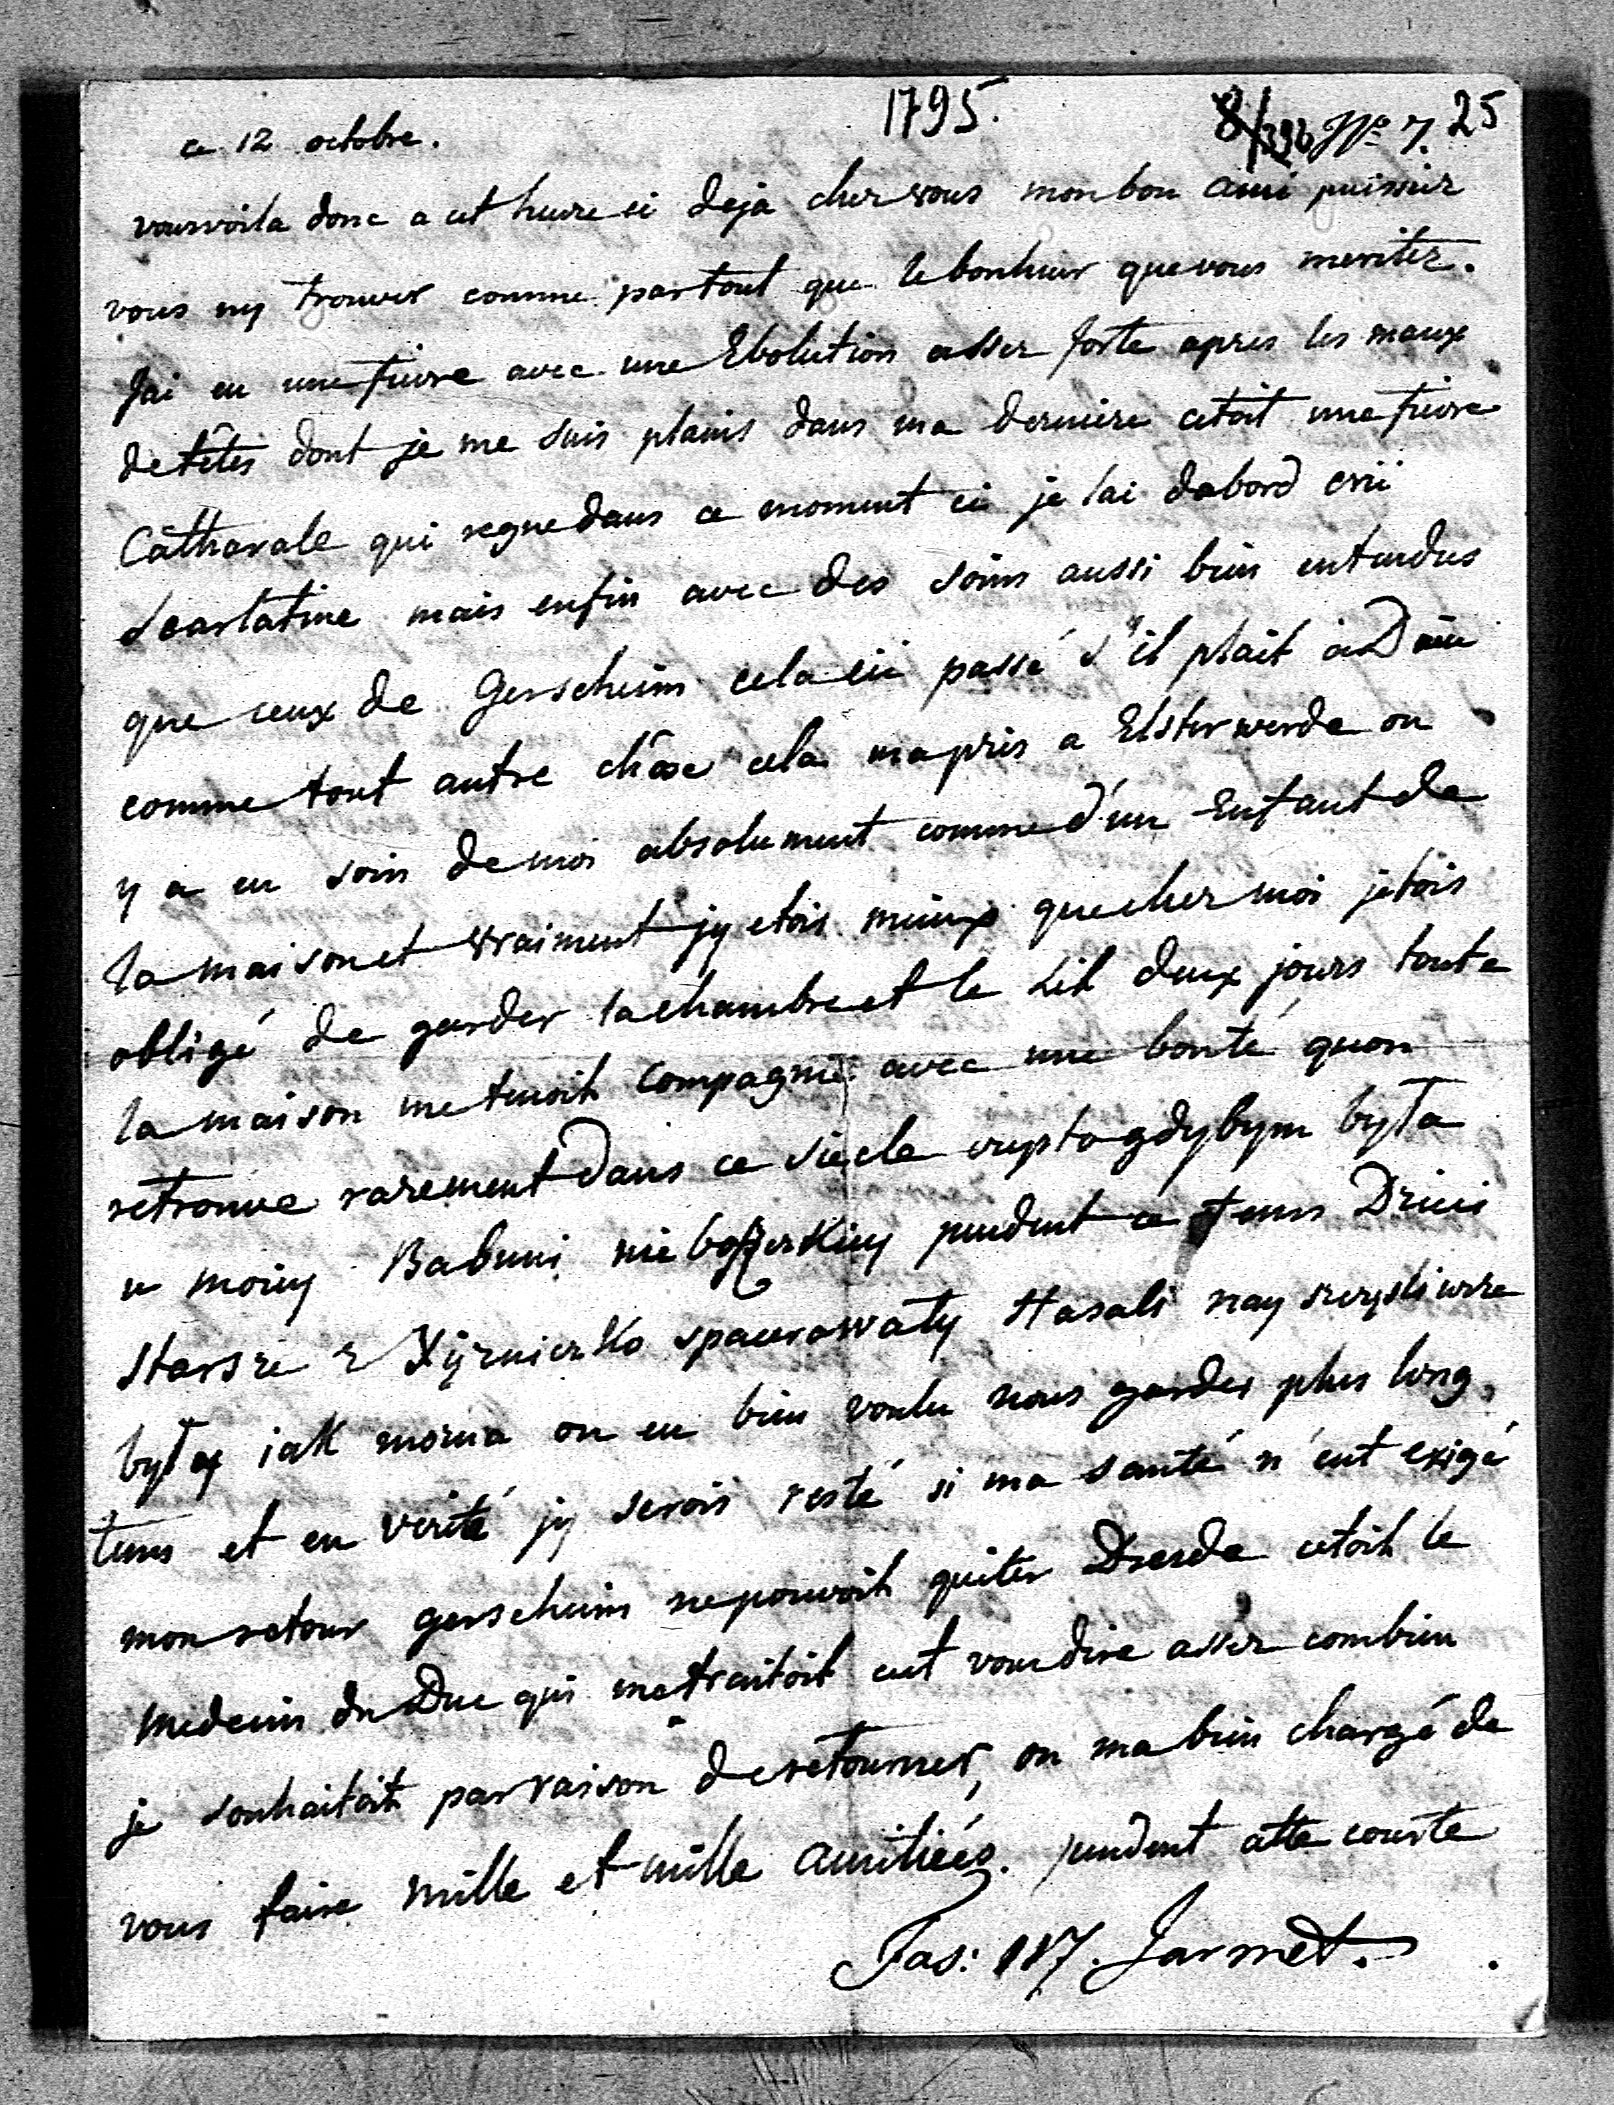 1795.
8/396 No 7. 25
ce 12 octobre.
vous voila donc a cet heure ci deja chez vous mon bon ami puissiez
vous ny trouver comme partout que le bonheur que vous meritez.
Jai eu une fievre avec une Ebolution assez forte apres les maux
de têtes dont je me suis plains dans ma derniere cetoit une fievre
Catharale qui regne dans ce moment ci je lai dabord crü
scarlatine mais enfin avec des soins aussi bien entendus
que ceux de Gerscheim cela passé s'il plait à Dieu
comme tout autre chôse cela ma pris a Elsterwerde on
y a eu soin de moi absolument comme d'un Enfant de
la maison et vraiment jy etois mieux que chez moi jetois
obligé de garder la chambre et le Lit deux jours toute
la maison me tenoit compagnie avec une bonté quon
retrouve rarement dans ce siecle czysto gdybym byŁa
u moiey Babuni nieboszczKiey pendent ce tems Dzieci
starsze z XiężniczKo spacerowaŁy Hasali nayszczęsliwsze
byŁy iaK można on eu bien voulu nous garder plus long
tems et en vérité jy serois resté si ma santé n'eut exigé
mon retour gerscheim ne pouvoit quiter Dresde cetoit le
Medecin du Duc qui me traitoit cet vous dire assez combien
je souhaitoit par raison de retourner, on ma bien chargé de
vous faire mille et mille amitiées. pendent cette courte
Fas: 117. Jarmet.